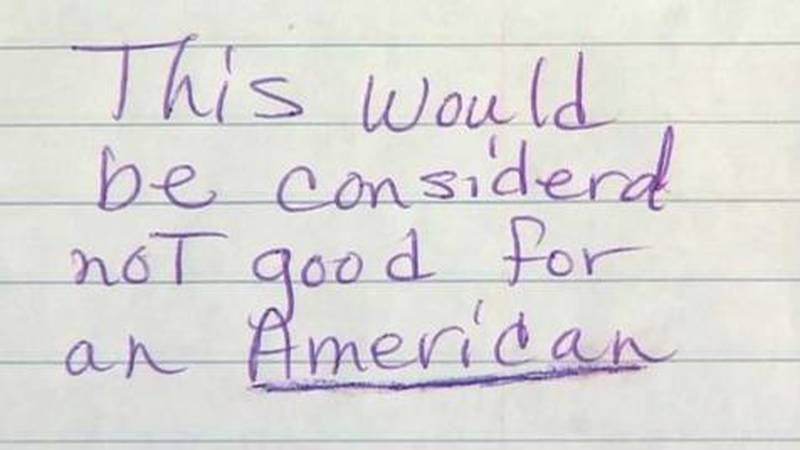 This would
be considerd
not good for
an American